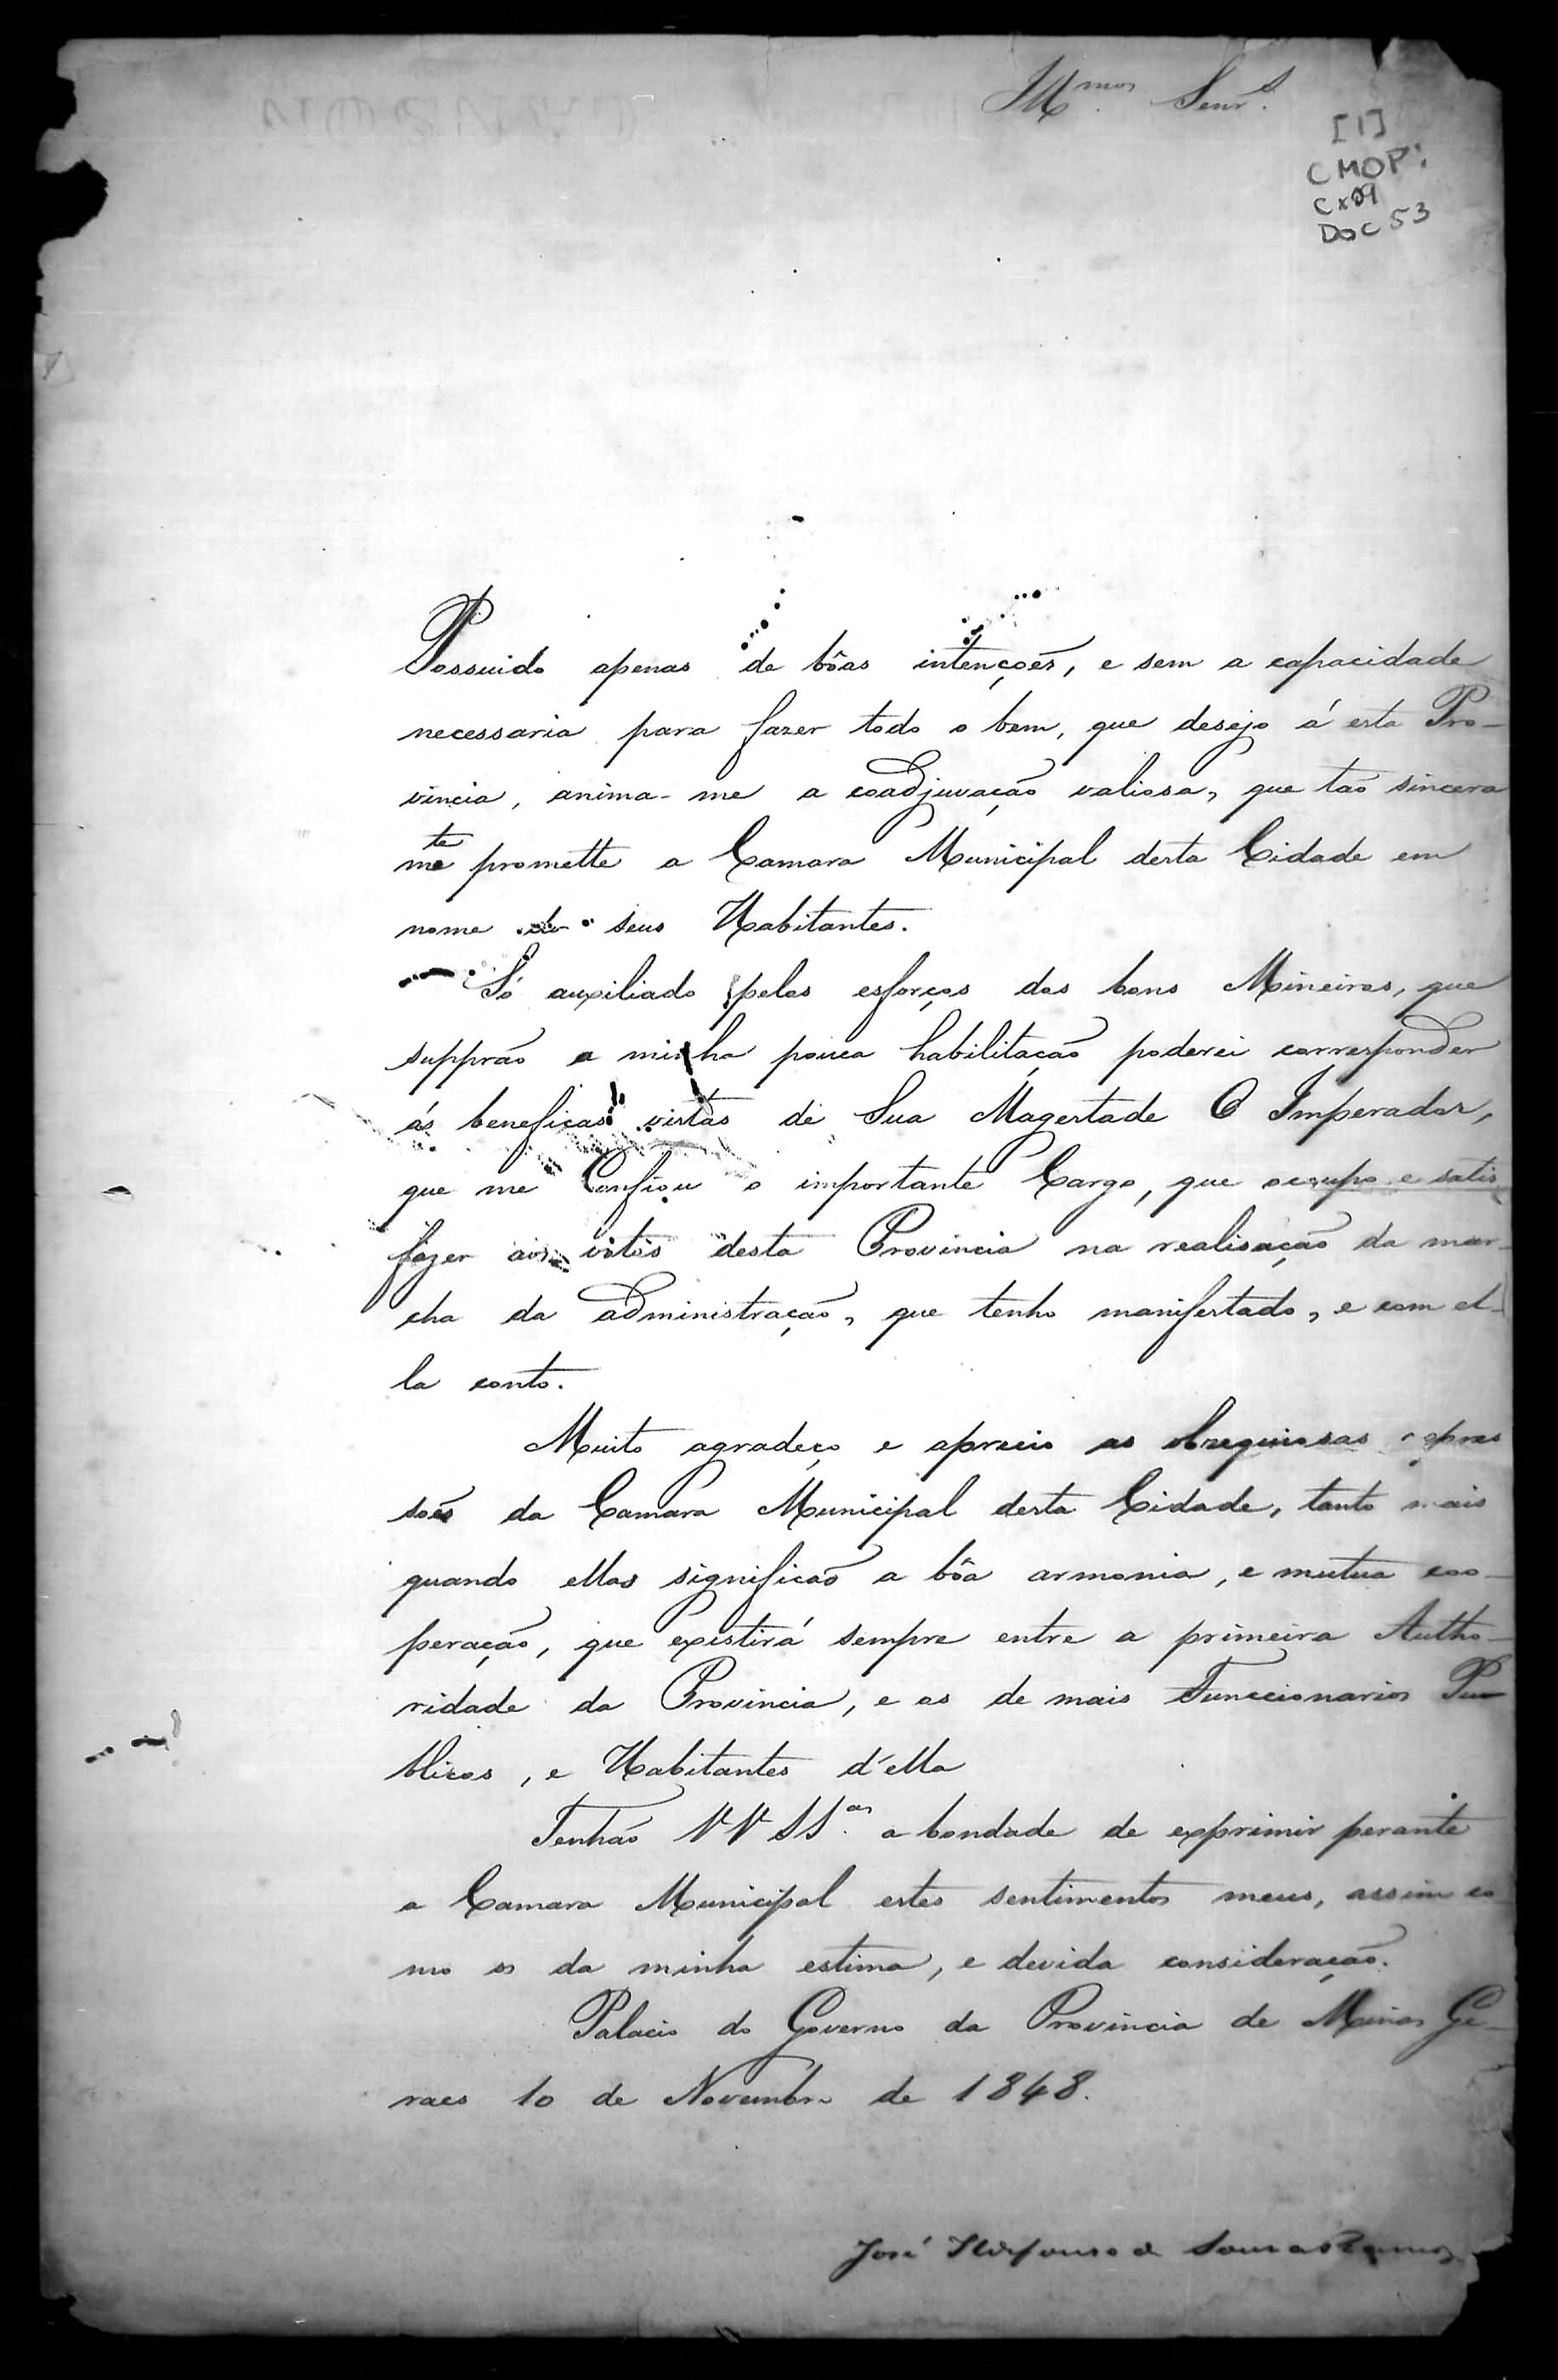 Illmos Senrs.
[1]
CMOP:
Cx 09
Doc 53
Possuido apenas de bôas intenções, e sem a capacidade
necessaria para fazer todo o bem, que desejo á esta Pro-
vincia, anima-me a coadjuvação valiosa, que tão sincera
mte promette a Camara Municipal desta Cidade em
nome de seus Habitantes.
Só auxiliado pelos esforços dos bons Mineiros, que
supprão a minha pouca habilitação poderei corresponder
ás beneficas vistas de Sua Magestade O Imperador,
que me Confiou o importante Cargo, que occupo e satis
fazer aos votos desta Provincia na realisação da mar-
cha da administração, que tenho manifestado, e com el-
la conto.
Muito agradeço e aprecio as obsequiosas expres
sões da Camara Municipal desta Cidade, tanto mais
quando ellas significão a bôa armonia, e mutua coo-
peração, que existirá sempre entre a primeira Autho-
ridade da Provincia, e os de mais Funccionarios Pu-
blicos, e Habitantes d'ella
Tenhão VV SSas. a bondade de exprimir perante
a Camara Municipal estes sentimentos meus, assim co
mo os da minha estima, e devida consideração.
Palacio do Governo da Provincia de Minas Ge-
raes 10 de Novembro de 1848.
José Ildefonso de Sousa Ramos